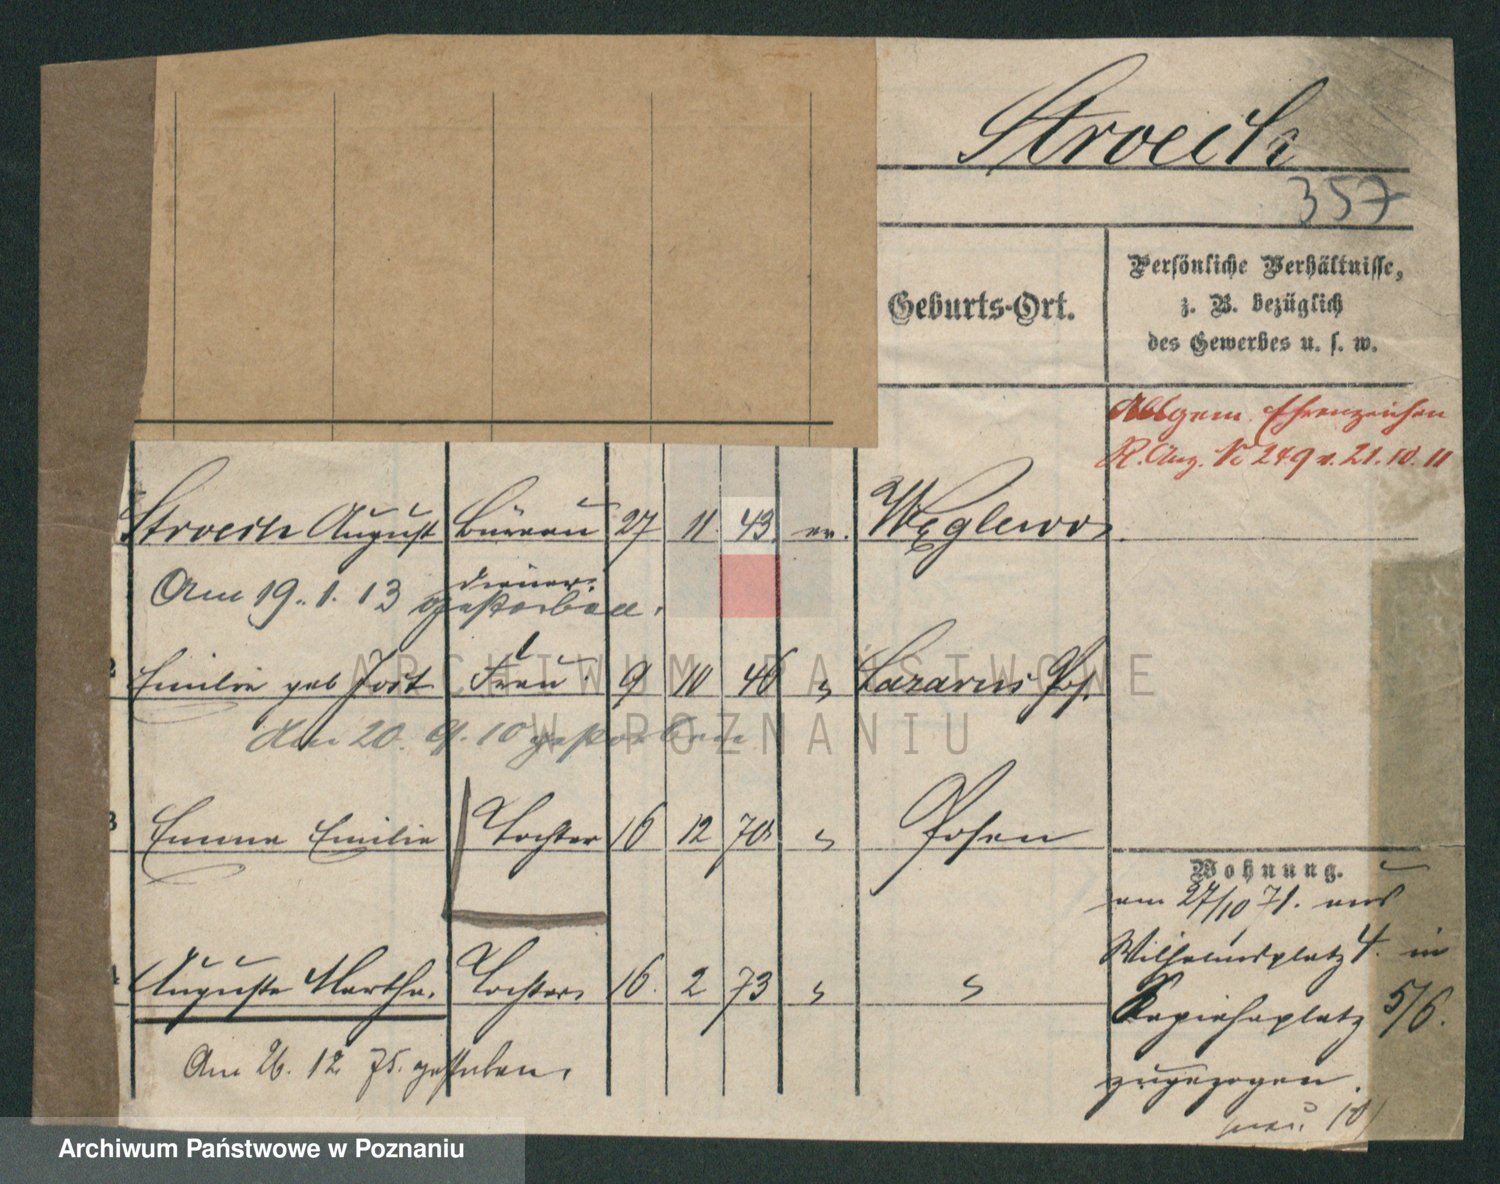 Stroech
357
Geburts-Ort.
Persönliche Verhältnisse,
z. B. bezüglich
des Gewerbes u. s. w.
Allgem. Ehrenzeichen
R. Anz. No 249 v. 21.10.11
Stroech August Büreau 27 11 43 ev. Węglewo
diener
Am 19. 1. 13 gestorben.
2 Emilie geb Jost Frau 9 10 46 " Lazarus Ps.
Am 20. 9. 10 gestorben
3 Emma Emilie Tochter 16 12 70 " Posen
4 Auguste Martha. Tochter 16. 2 73 " "
Am 26. 12 75. gestorben.
Wohnung.
am 27/10 71. aus
Wilhelmsplatz 4. in
Sapiehaplatz 5/6.
zugezogen.
ARCHIWUM PAŃSTWOWE
W POZNANIU
Archiwum Państwowe w Poznaniu